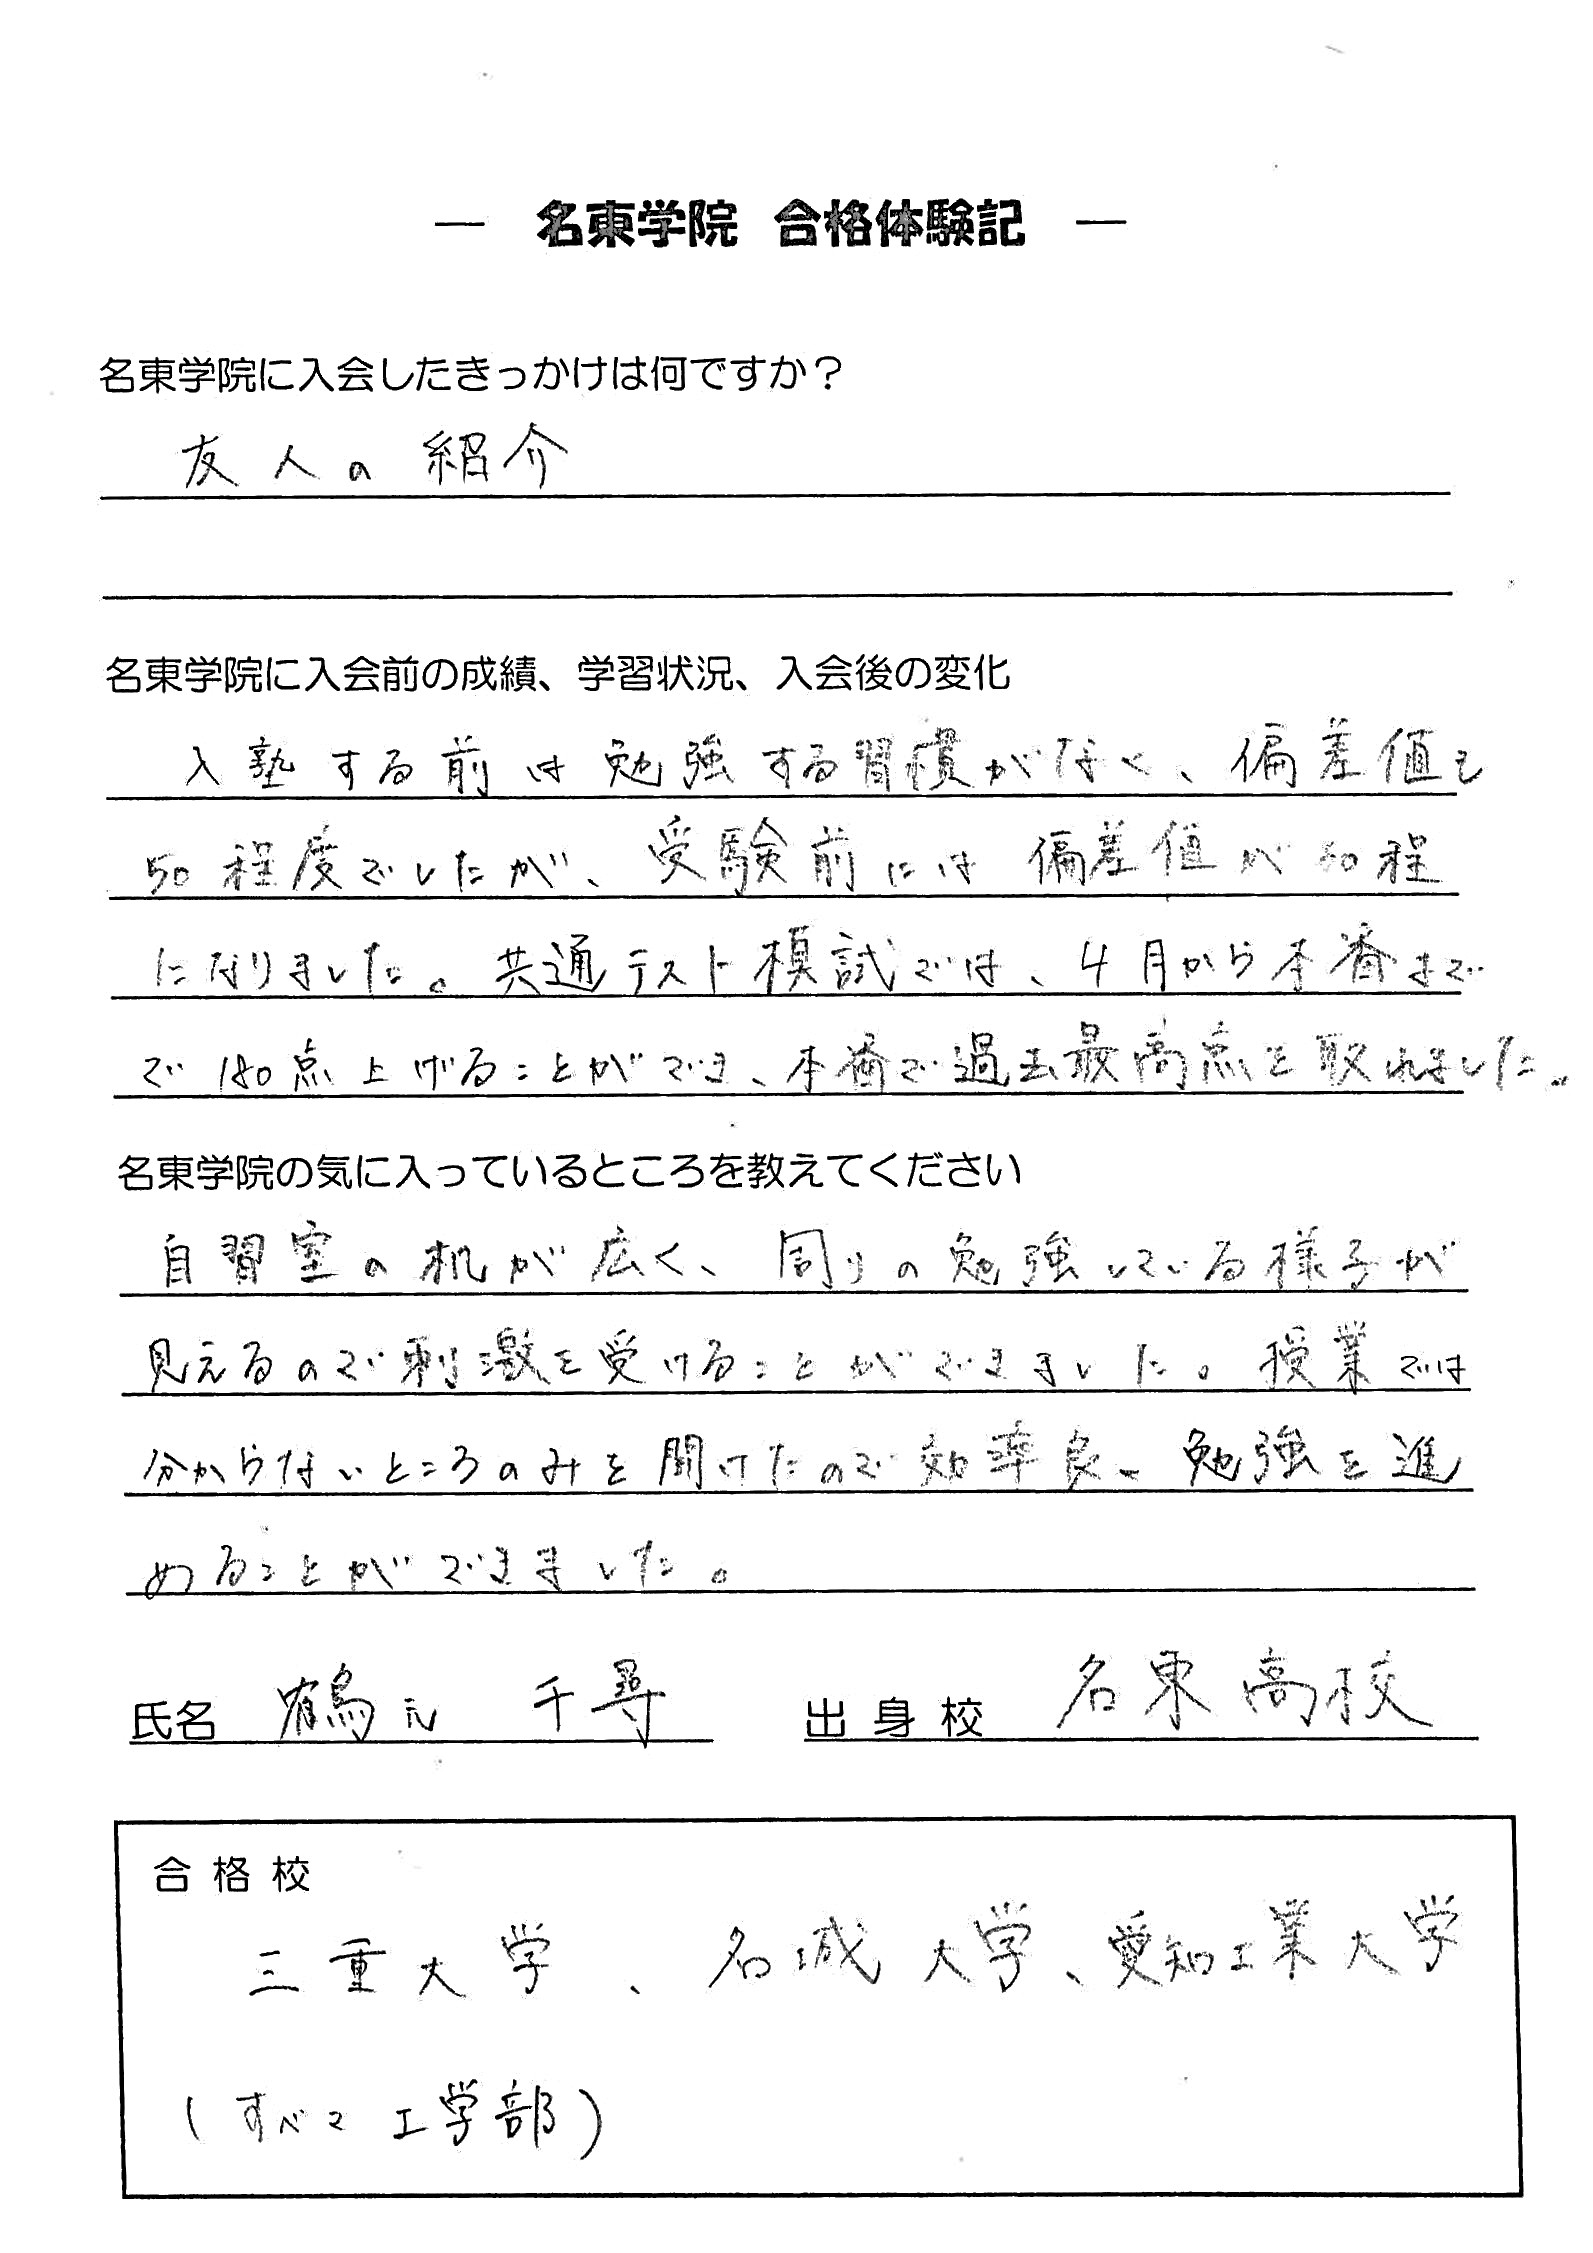 ― 名東学院 合格体験記 ―
名東学院に入会したきっかけは何ですか？
友人の紹介
名東学院に入会前の成績、学習状況、入会後の変化
入塾する前は勉強する習慣がなく、偏差値も
50程度でしたが、受験前には偏差値が60程
になりました。共通テスト模試では、4月から本番まで
で180点上げることができ、本番で過去最高点を取れました。
名東学院の気に入っているところを教えてください
自習室の机が広く、周りの勉強している様子が
見えるので刺激を受けることができました。授業では
分からないところのみを聞けたので効率良く勉強を進
めることができました。
氏名 鶴元 千尋 出身校 名東高校
合格校
三重大学、名城大学、愛知工業大学
(すべて工学部)